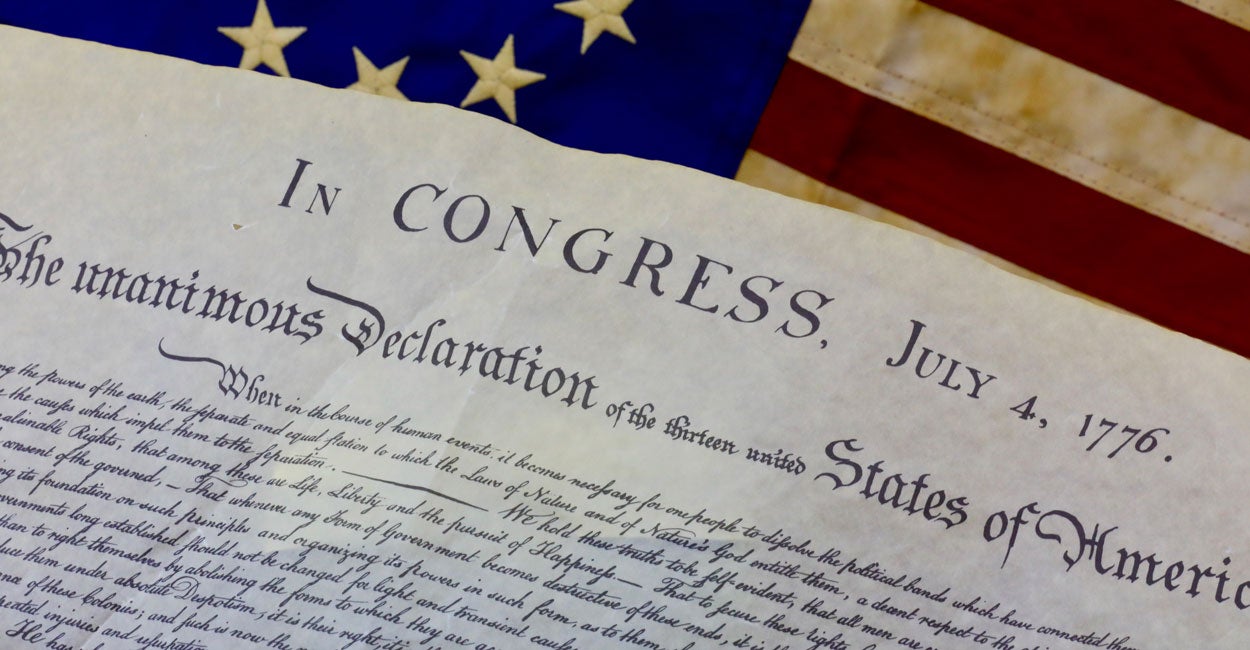 In CONGRESS, July 4, 1776.
The unanimous Declaration of the thirteen united States of Americ
When in the Course of human events, it becomes necessary for one people to dissolve the political bands which have connected them
ng the powers of the earth, the separate and equal station to which the Laws of Nature and of Nature's God entitle them, a decent respect to the
the causes which impel them to the separation. — We hold these truths to be self-evident, that all men are
alienable Rights, that among these are Life, Liberty and the pursuit of Happiness.— That to secure these rights,
consent of the governed, — That whenever any Form of Government becomes destructive of these ends, it is
ng its foundation on such principles and organizing its powers in such form, as to them
vernments long established should not be changed for light and transient causes
than to right themselves by abolishing the forms to which they are ac
duce them under absolute Despotism, it is their right, it
nce of these Colonies; and such is now the
repeated injuries and usurpation
He has